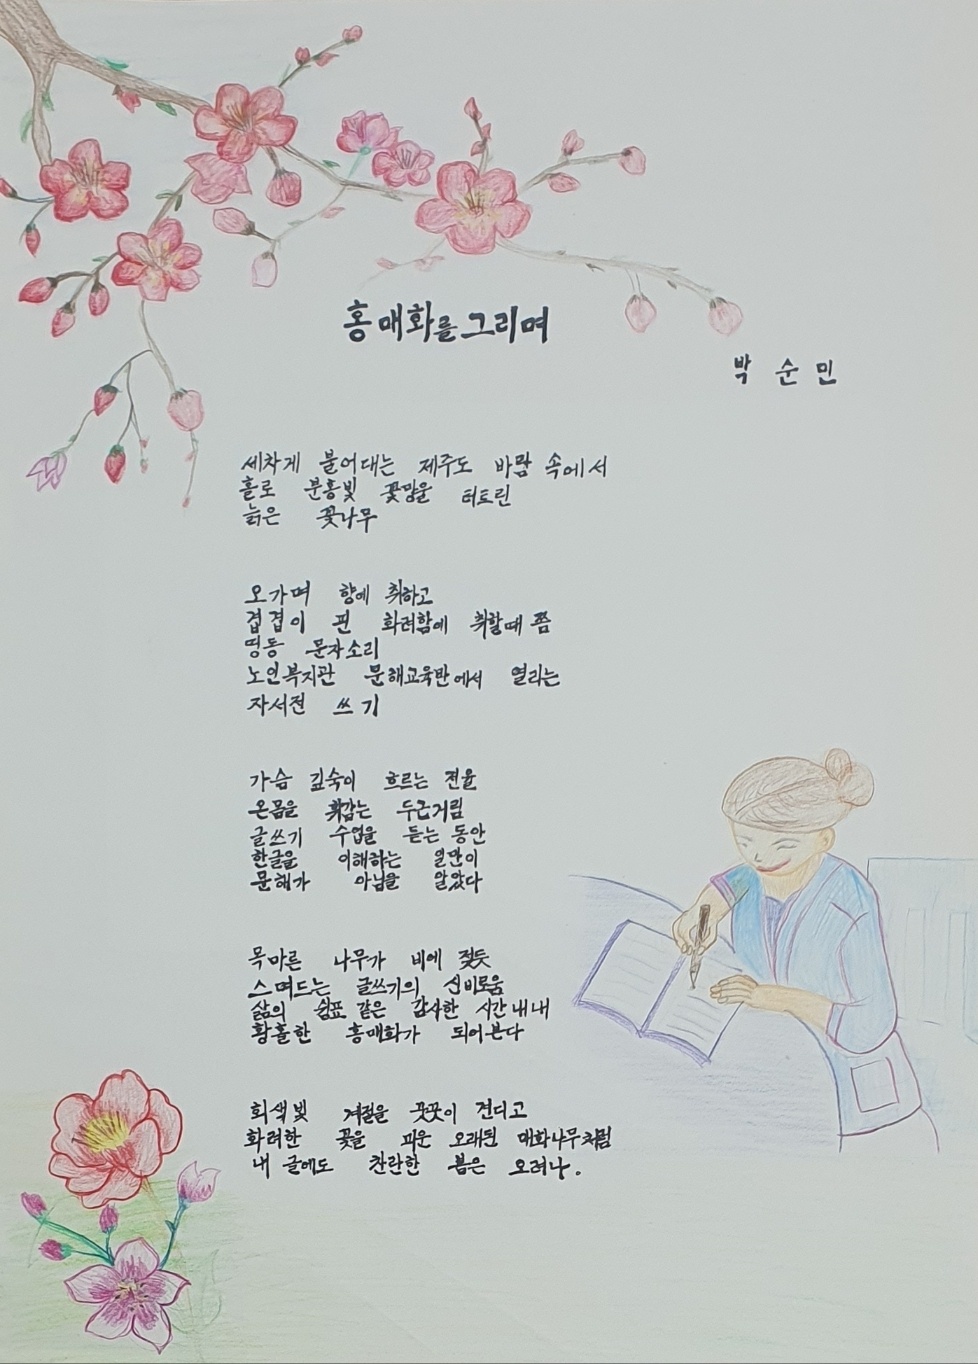 홍매화를 그리며
박순민
세차게 불어대는 제주도 바람 속에서
홀로 분홍빛 꽃망울 터트린
늙은 꽃나무
오가며 향에 취하고
겹겹이 핀 화려함에 취할때 쯤
띵동 문자소리
노인복지관 문해교육반에서 열리는
자서전 쓰기
가슴 깊숙이 흐르는 전율
온몸을 휘감는 두근거림
글쓰기 수업을 듣는 동안
한글을 이해하는 일만이
문해가 아님을 알았다
목마른 나무가 비에 젖듯
스며드는 글쓰기의 신비로움
삶의 쉼표 같은 감사한 시간 내내
황홀한 홍매화가 되어본다
회색빛 계절을 꿋꿋이 견디고
화려한 꽃을 피운 오래된 매화나무처럼
내 글에도 찬란한 봄은 오려나.